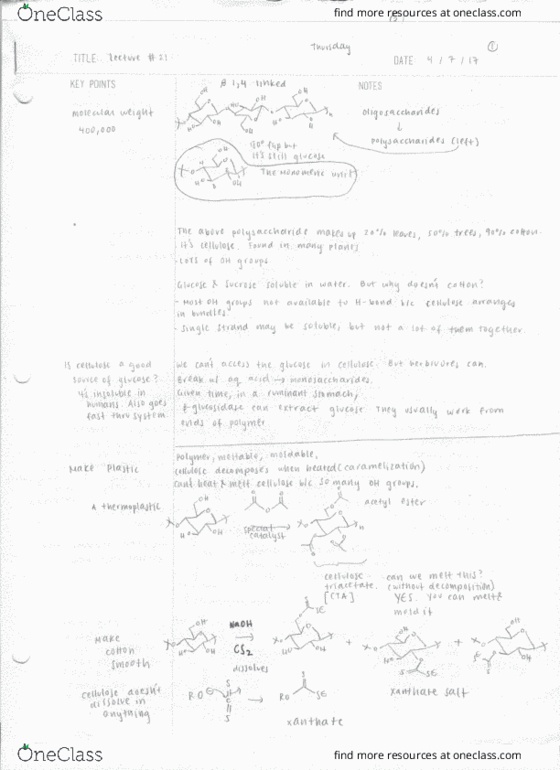 OneClass
find more resources at oneclass.com
Thursday
1
TITLE: Lecture #21
DATE 4/7/17
KEY POINTS
β 1,4 linked
NOTES
molecular weight
400,000
oligosaccharides
↓
polysaccharides (left)
180° flip but
it's still glucose
The monomeric unit
The above polysaccharide makes up 20% leaves, 50% trees, 90% cotton.
It's cellulose. Found in many plants
Lots of OH groups
Glucose & sucrose soluble in water. But why doesn't cotton?
- Most OH groups not available to H-bond b/c cellulose arranges
in bundles.
- Single strand may be soluble, but not a lot of them together.
Is cellulose a good
source of glucose?
insoluble in
humans. Also goes
fast thru system.
We can't access the glucose in cellulose. But herbivores can.
Break w/ aq acid → monosaccharides.
Given time, in a ruminant stomach,
β-glucosidase can extract glucose. They usually work from
ends of polymer
Make plastic
Polymer, meltable, moldable.
cellulose decomposes when heated (caramelization)
can't heat & melt cellulose b/c so many OH groups.
A thermoplastic
special
catalyst
acetyl ester
cellulose
triacetate
[CTA]
can we melt this?
(without decomposition)
YES. You can melt &
mold it
Make
cotton
smooth
NaOH
CS2
dissolves
+
+
xanthate salt
cellulose doesn't
dissolve in
anything
xanthate
OneClass
find more resources at oneclass.com